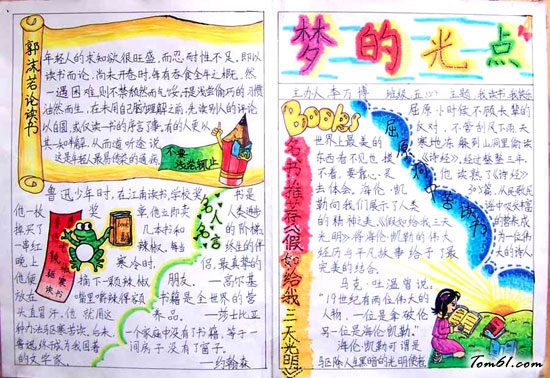 郭沫若论读书
年轻人的求知欲很旺盛,而忍耐性不足,即以
读书而论,尚未开卷时,每有吞食全牛之概,然
一遇困难,则不禁颓然而气馁,于是浅尝偷巧的习惯
油然而生,在未用自己的理解之前,先读别人的评论
以自圆,或仅读一书的序言了事,有的人更从
其一知半解,从而道听途说
这是年轻人最易传染的通病
不要
浅尝辄止
鲁迅少年时,在江南读书学校
他一枚奖章,他立即卖
换买了几本书和
一串红辣椒,每当
晚上寒冷时,
他便摘下一颗辣椒
放在嘴里嚼辣得家
头直冒汗,他就用这
种办法驱寒苦读,后来
终于成为我国著
的文学家。
驱寒
读书
名人名言
书是
人类进步
的阶梯
终生的伴
侣,最真挚的
朋友。
——高尔基
书籍是全世界的营
养品。——莎士比亚
一个家庭中没有了书籍,等于一
间房子没有了窗子。
——约翰森
梦的光点
主办人李万博 班级五 主题 我读书我
Books
名书推荐《假如给我三天光明》
世界上最美的
东西看不见也摸
不着,要靠心灵
去体会。海伦·凯
勒向我们展示了人类
的精神之美《假如给我三天
光明》将海伦·凯勒的伟大
经历与平凡故事给予了最
完美的结合。
马克·吐温曾说:
“19世纪有两位伟大的
人物,一位是拿破伦
另一位是海伦·凯勒。”
海伦·凯勒可谓是
屈原洞中苦读书
屈原小时候不顾长辈的
反对,不管刮风下雨天
寒地冻,躲到山洞里偷读
《诗经》,经过整整三年
他读熟了《诗经》
305篇,从民歌民
谣中吸收丰富
的营养,成
为一位伟
大的诗人
Tom61.com